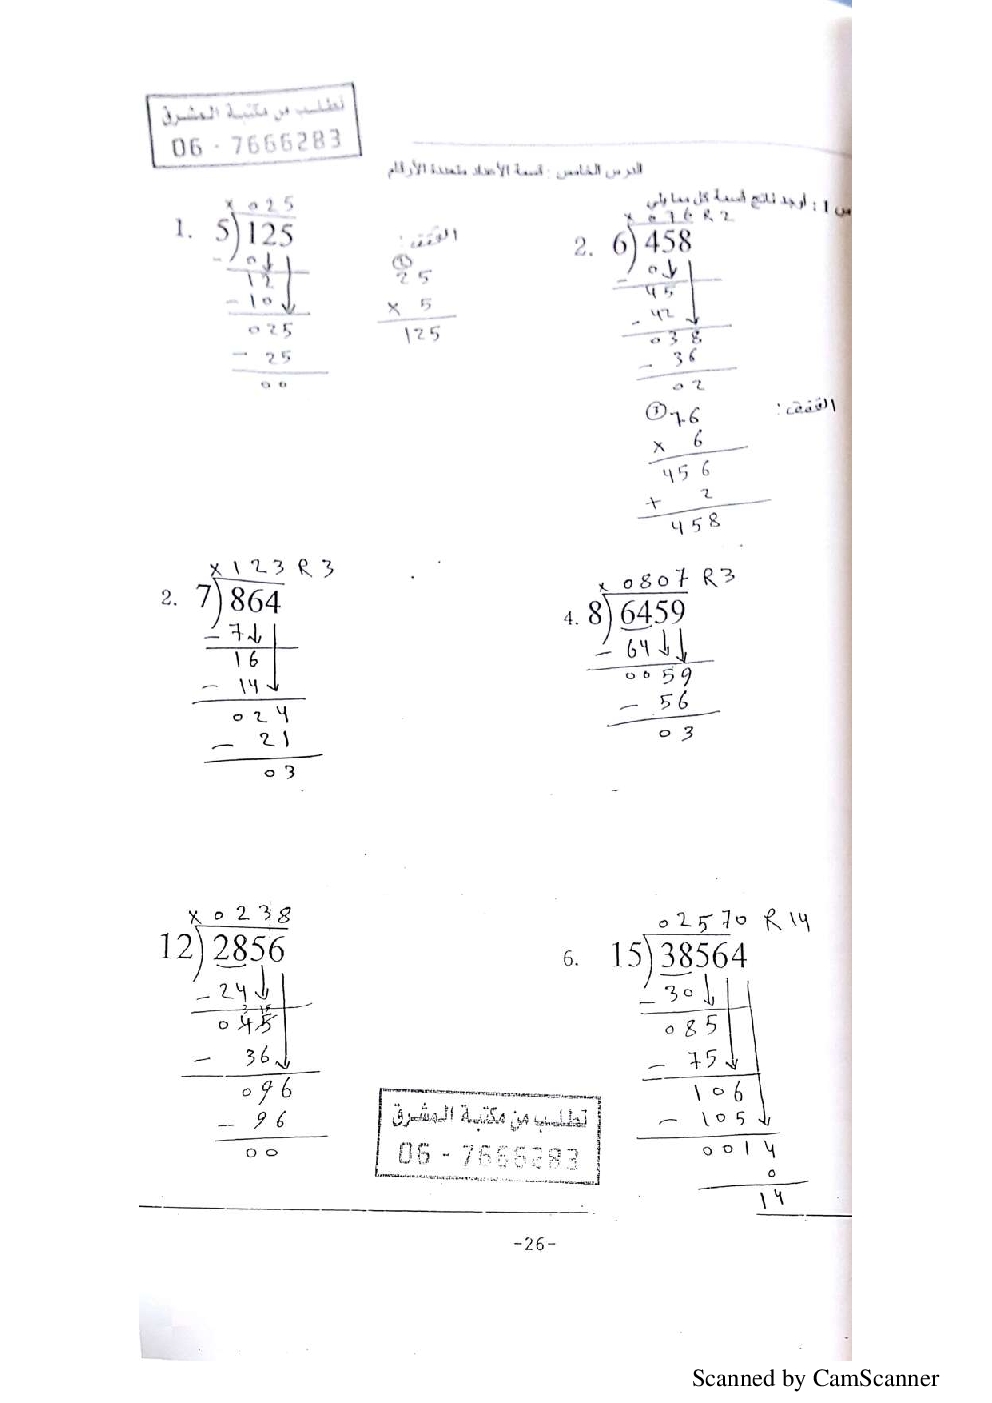 تطلب من مكتبة المشرق
06 - 7666283
الدرس الخامس : قسمة الأعداد متعددة الأرقام
س 1 : أوجد ناتج قسمة كل مما يلي
x 0 2 5
1. 5)125
- 0
12
- 10
025
- 25
00
2
25
x 5
125
x 0 7 6 R 2
2. 6)458
- 0
45
- 42
038
- 36
02
3 76
x 6
456
+ 2
458
x 1 2 3 R 3
2. 7)864
- 7
16
- 14
024
- 21
03
x 0 8 0 7 R3
4. 8)6459
- 64
0059
- 56
03
x 0 2 3 8
12)2856
- 24
045
- 36
096
- 96
00
0 2 5 7 0 R 14
6. 15)38564
- 30
085
- 75
106
- 105
0014
0
14
تطلب من مكتبة المشرق
06 - 7666283
-26-
Scanned by CamScanner